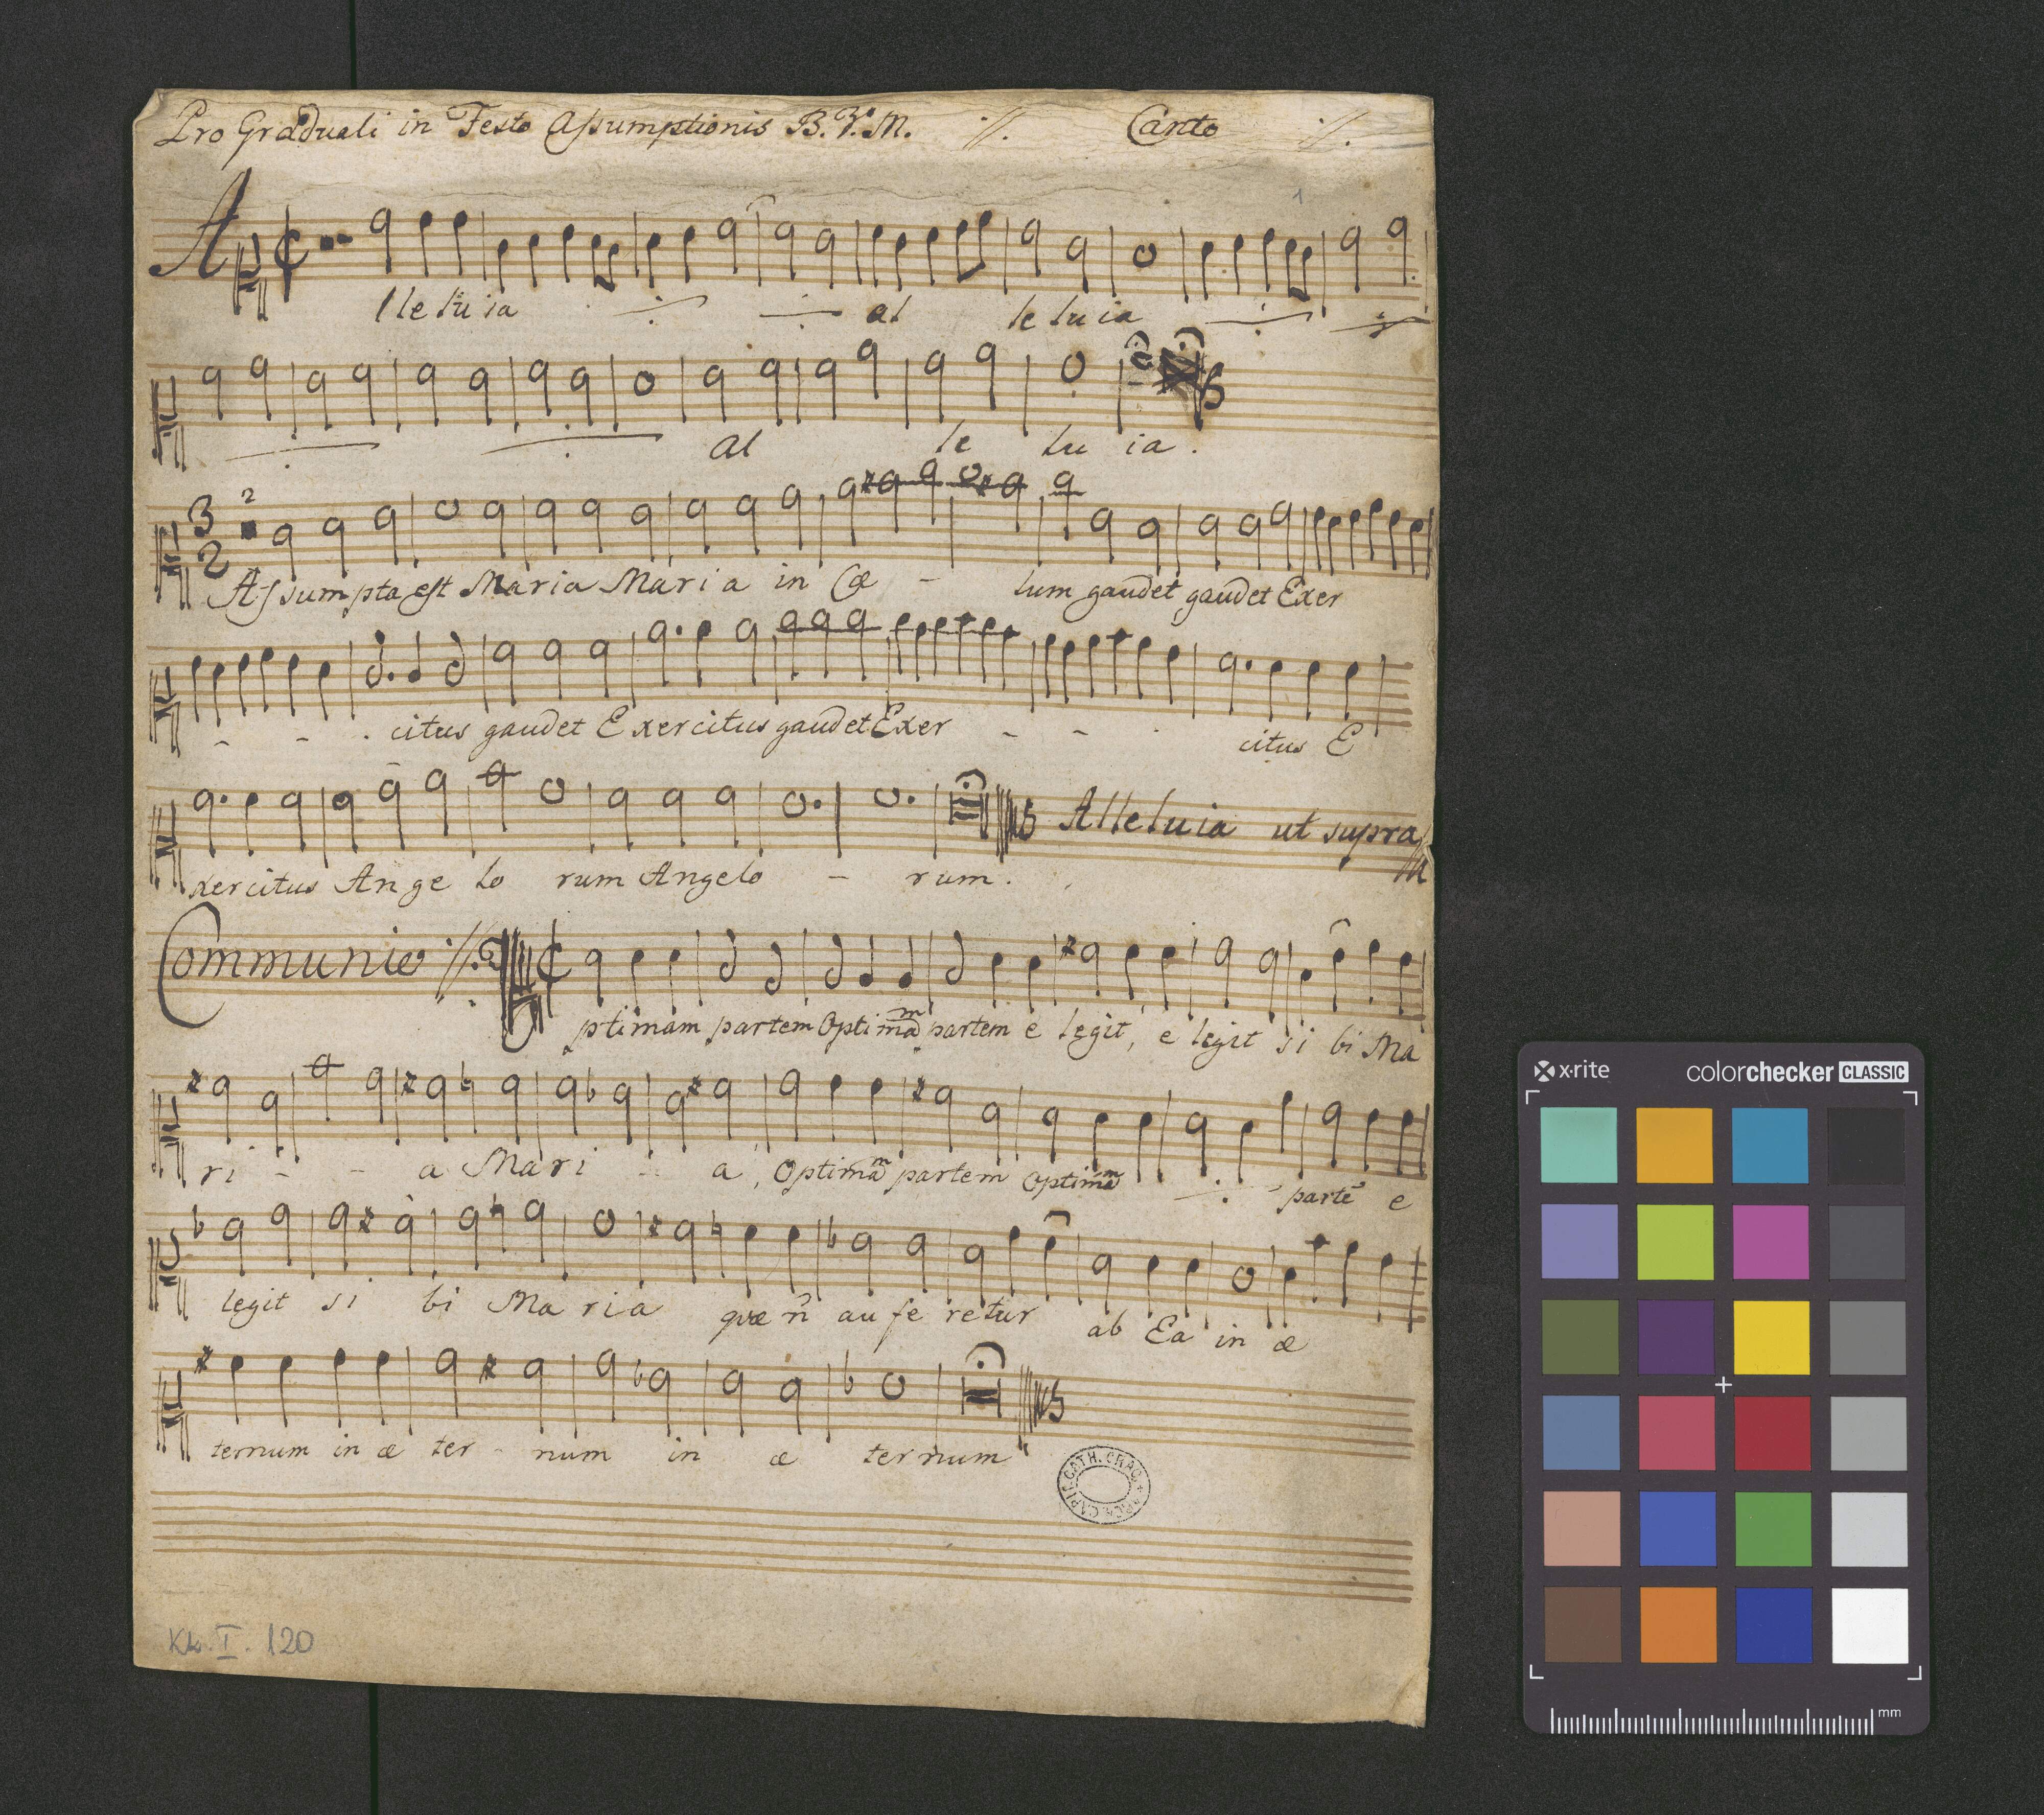 Pro Graduali in Festo Assumptionis B. V. M. Canto
1
A
lle lu ia al le lu ia
al le lu ia.
3 2
2
Assumpta est Maria Maria in Cæ - lum gaudet gaudet Exer
- - . citus gaudet Exercitus gaudet Exer - - citus E
Alleluia ut supra
xercitus Ange lo rum Angelo - rum.
Communio O
ptimam partem Optimam partem e legit, e legit si bi Ma
ri - - a Mari - a, Optimam partem Optimam parte e
legit si bi Maria quæ ñ aufe retur ab Ea in æ
ternum in æ ter - num in æ ternum
CATH. CRAC.
Kk. I. 120
x-rite colorchecker CLASSIC
mm